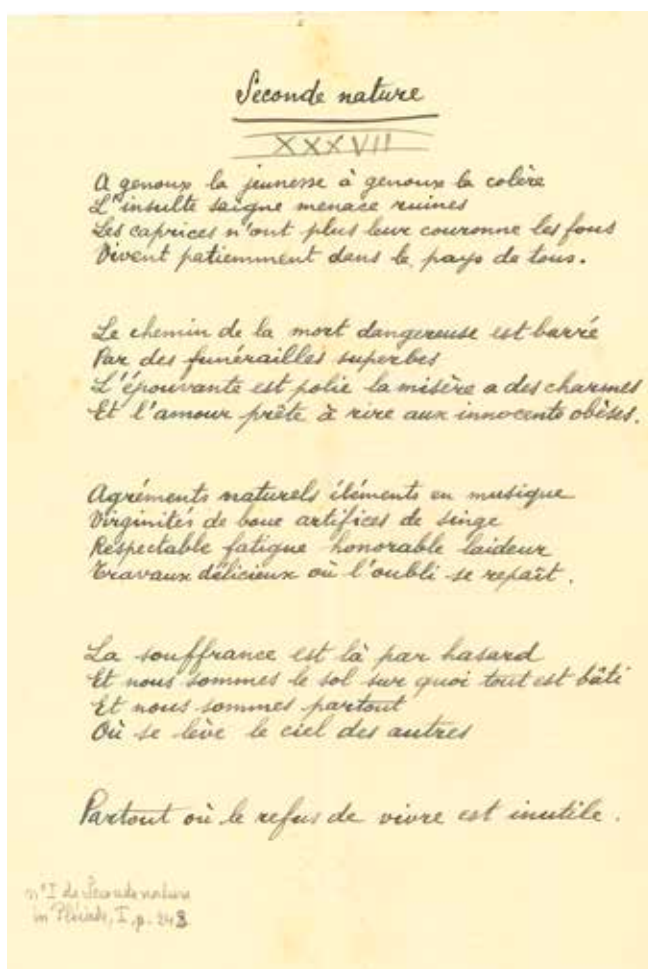 Seconde nature
XXXVII
A genoux la jeunesse à genoux la colère
L'insulte saigne menace ruines
Les caprices n'ont plus leur couronne les fous
Vivent patiemment dans le pays de tous.
Le chemin de la mort dangereuse est barré
Par des funérailles superbes
L'épouvante est polie la misère a des charmes
Et l'amour prête à rire aux innocents obèses.
Agréments naturels éléments en musique
Virginités de boue artifices de singe
Respectable fatigue honorable laideur
Travaux délicieux où l'oubli se repaît.
La souffrance est là par hasard
Et nous sommes le sol sur quoi tout est bâti
Et nous sommes partout
Où se lève le ciel des autres
Partout où le refus de vivre est inutile.
n° I de Seconde nature
in Pléiade, I, p. 243